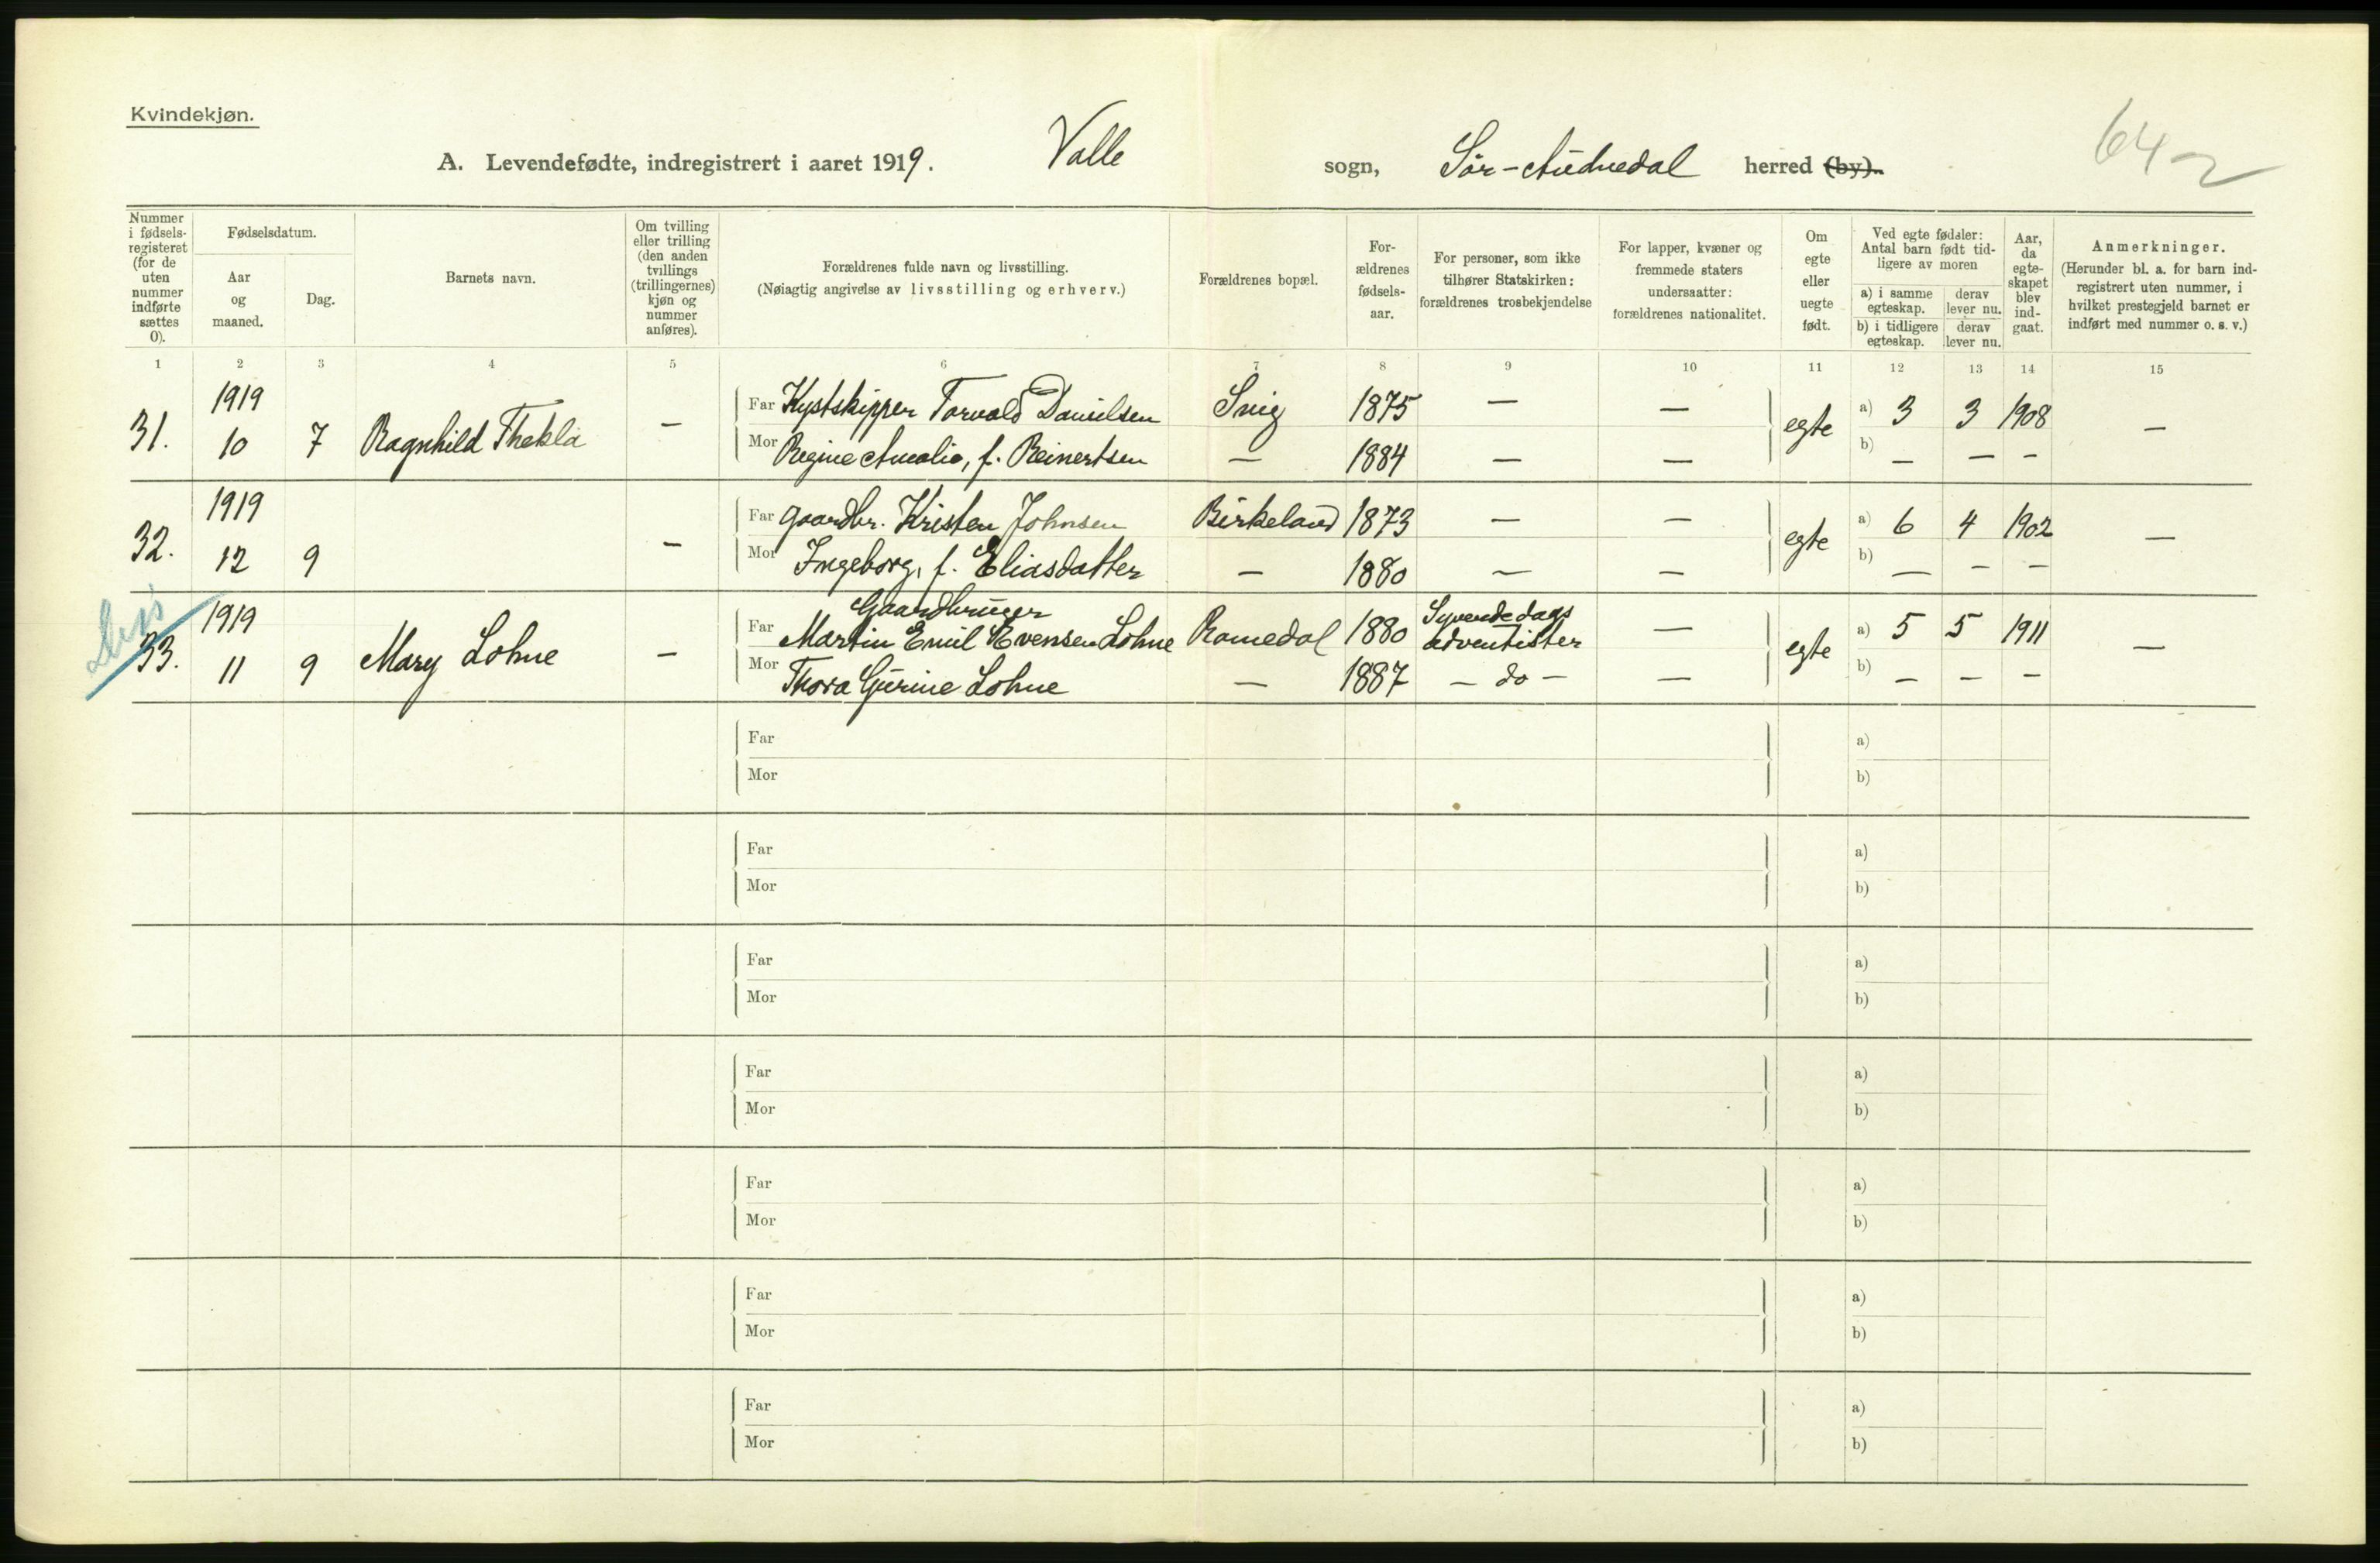 Kvindekjøn.
A. Levendefødte, indregistrert i aaret 1919. Valle sogn, Sør-Audnedal herred (by).
64-2
Nummer i fødsels-registeret (for de uten nummer indførte sættes 0).
Fødselsdatum.
Aar og maaned.
Dag.
Barnets navn.
Om tvilling eller trilling (den anden tvillings (trillingernes) kjøn og nummer anføres).
Forældrenes fulde navn og livsstilling.
(Nøiagtig angivelse av livsstilling og erhverv.)
Forældrenes bopæl.
For-ældrenes fødsels-aar.
For personer, som ikke tilhører Statskirken: forældrenes trosbekjendelse
For lapper, kvæner og fremmede staters undersaatter: forældrenes nationalitet.
Om egte eller uegte født.
Ved egte fødsler: Antal barn født tid-ligere av moren
a) i samme egteskap.
derav lever nu.
b) i tidligere egteskap.
derav lever nu.
Aar, da egte-skapet blev ind-gaat.
Anmerkninger.
(Herunder bl. a. for barn ind-registrert uten nummer, i hvilket prestegjeld barnet er indført med nummer o. s. v.)
1 2 3 4 5 6 7 8 9 10 11 12 13 14 15
31. 1919 10 7 Ragnhild Thekla – Far Kystskipper Torvald Danielsen Snig 1875 — — egte a) 3 3 1908 —
Mor Regine Amalie, f. Reinertsen — 1884 — — b) — — –
32. 1919 12 9 – Far Gaardbr. Kristen Johnsen Birkeland 1873 — — egte a) 6 4 1902 —
Mor Ingeborg, f. Eliasdatter — 1880 — — b) — – –
33. 1919 11 9 Mary Lohne – Far Gaardbruger
Martin Emil Evensen Lohne Ramedal 1880 Syvendedags adventister — egte a) 5 5 1911 —
Mor Thora Gurine Lohne — 1887 – do – — b) – – –
Far a)
Mor b)
Far a)
Mor b)
Far a)
Mor b)
Far a)
Mor b)
Far a)
Mor b)
Far a)
Mor b)
Far a)
Mor b)